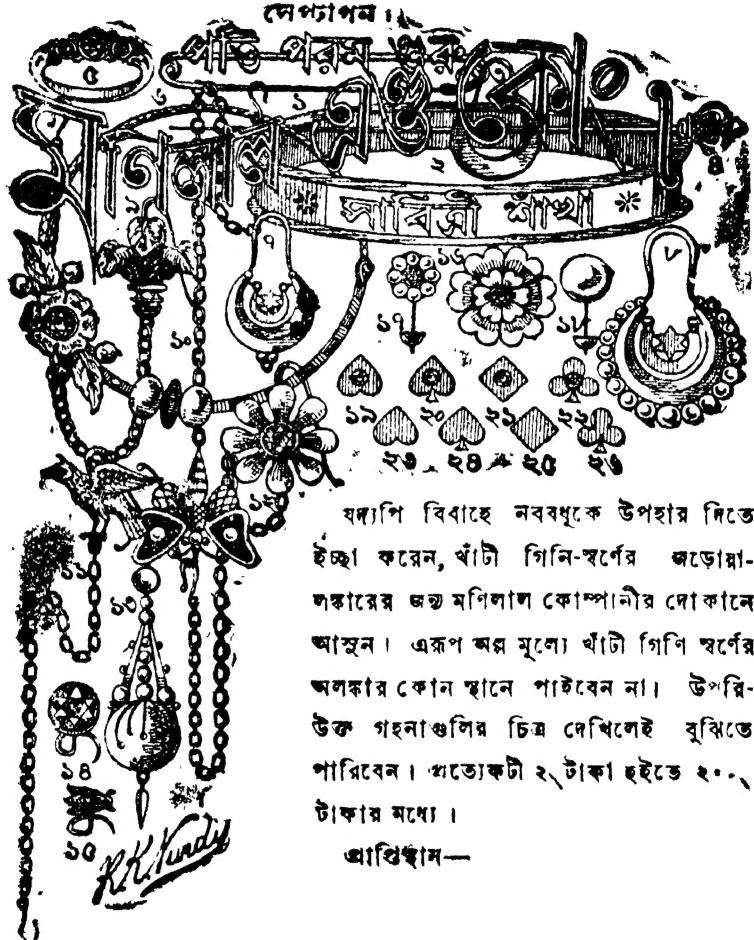 সেপ্টাপন।
পতি পরম গুরু
মণিলাল এণ্ড কোং
সাবিত্রী শাঁখা
৫
৬
১
৩
৪
২
৯
৭
৮
১০
১৬
১৭
১৮
১৯ ২০ ২১ ২২
২৩ ২৪ ২৫ ২৬
১২
১১
১৩
১৪
১৫
R.K. Nundy
যদ্যপি বিবাহে নববধূকে উপহার দিতে
ইচ্ছা করেন, খাঁটী গিনি-স্বর্ণের জড়োয়া-
লঙ্কারের জন্য মণিলাল কোম্পানীর দোকানে
আসুন। এরূপ অল্প মূল্যে খাঁটী গিণি স্বর্ণের
অলঙ্কার কোন স্থানে পাইবেন না। উপরি-
উক্ত গহনাগুলির চিত্র দেখিলেই বুঝিতে
পারিবেন। প্রত্যেকটী ২৲ টাকা হইতে ২০০৲
টাকার মধ্যে।
প্রাপ্তিস্থান—